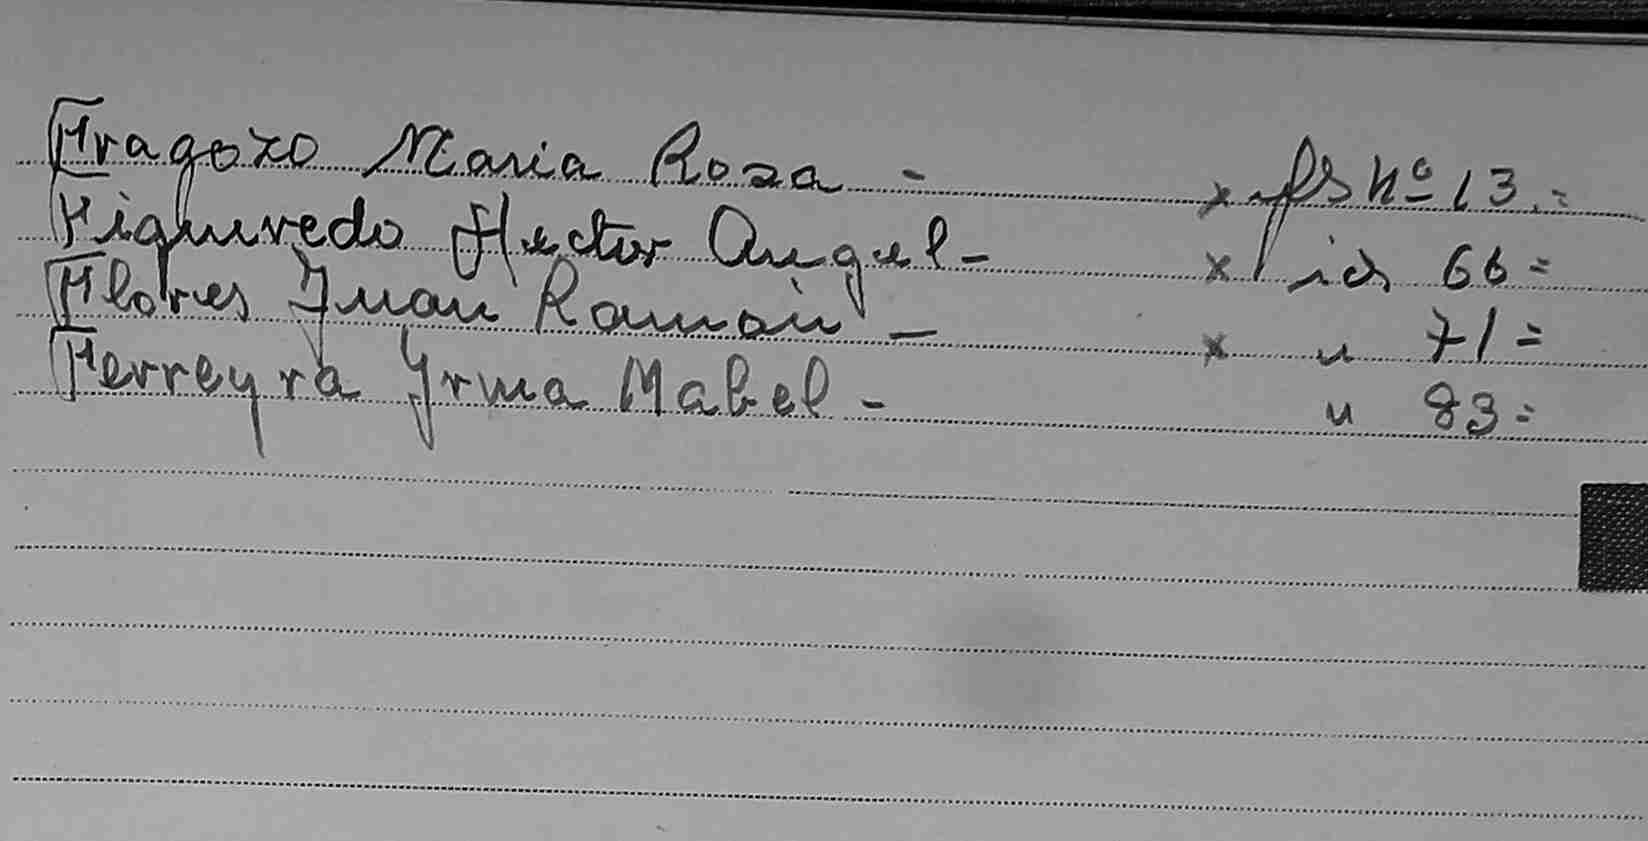 Fragozo Maria Rosa - x fs Nº 13.=
Figueredo Hector Angel - x id 66=
Flores Juan Ramón - x " 71=
Ferreyra Yrma Mabel - " 83=